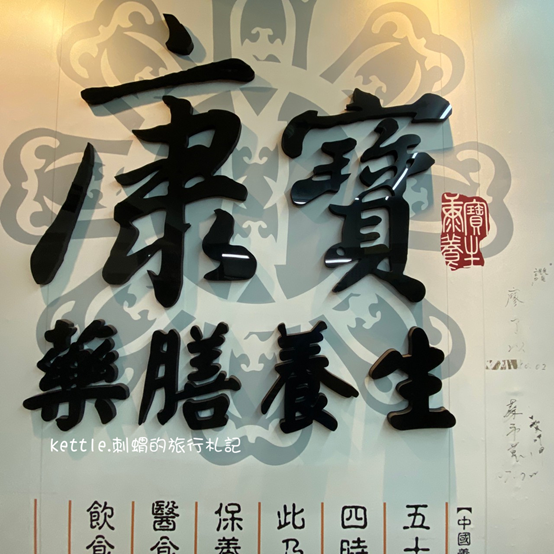 康寶
藥膳養生
寶生康養
kettle.刺蝟的旅行札記
【中國養
五十
四時
此乃
保養
醫食
飲食